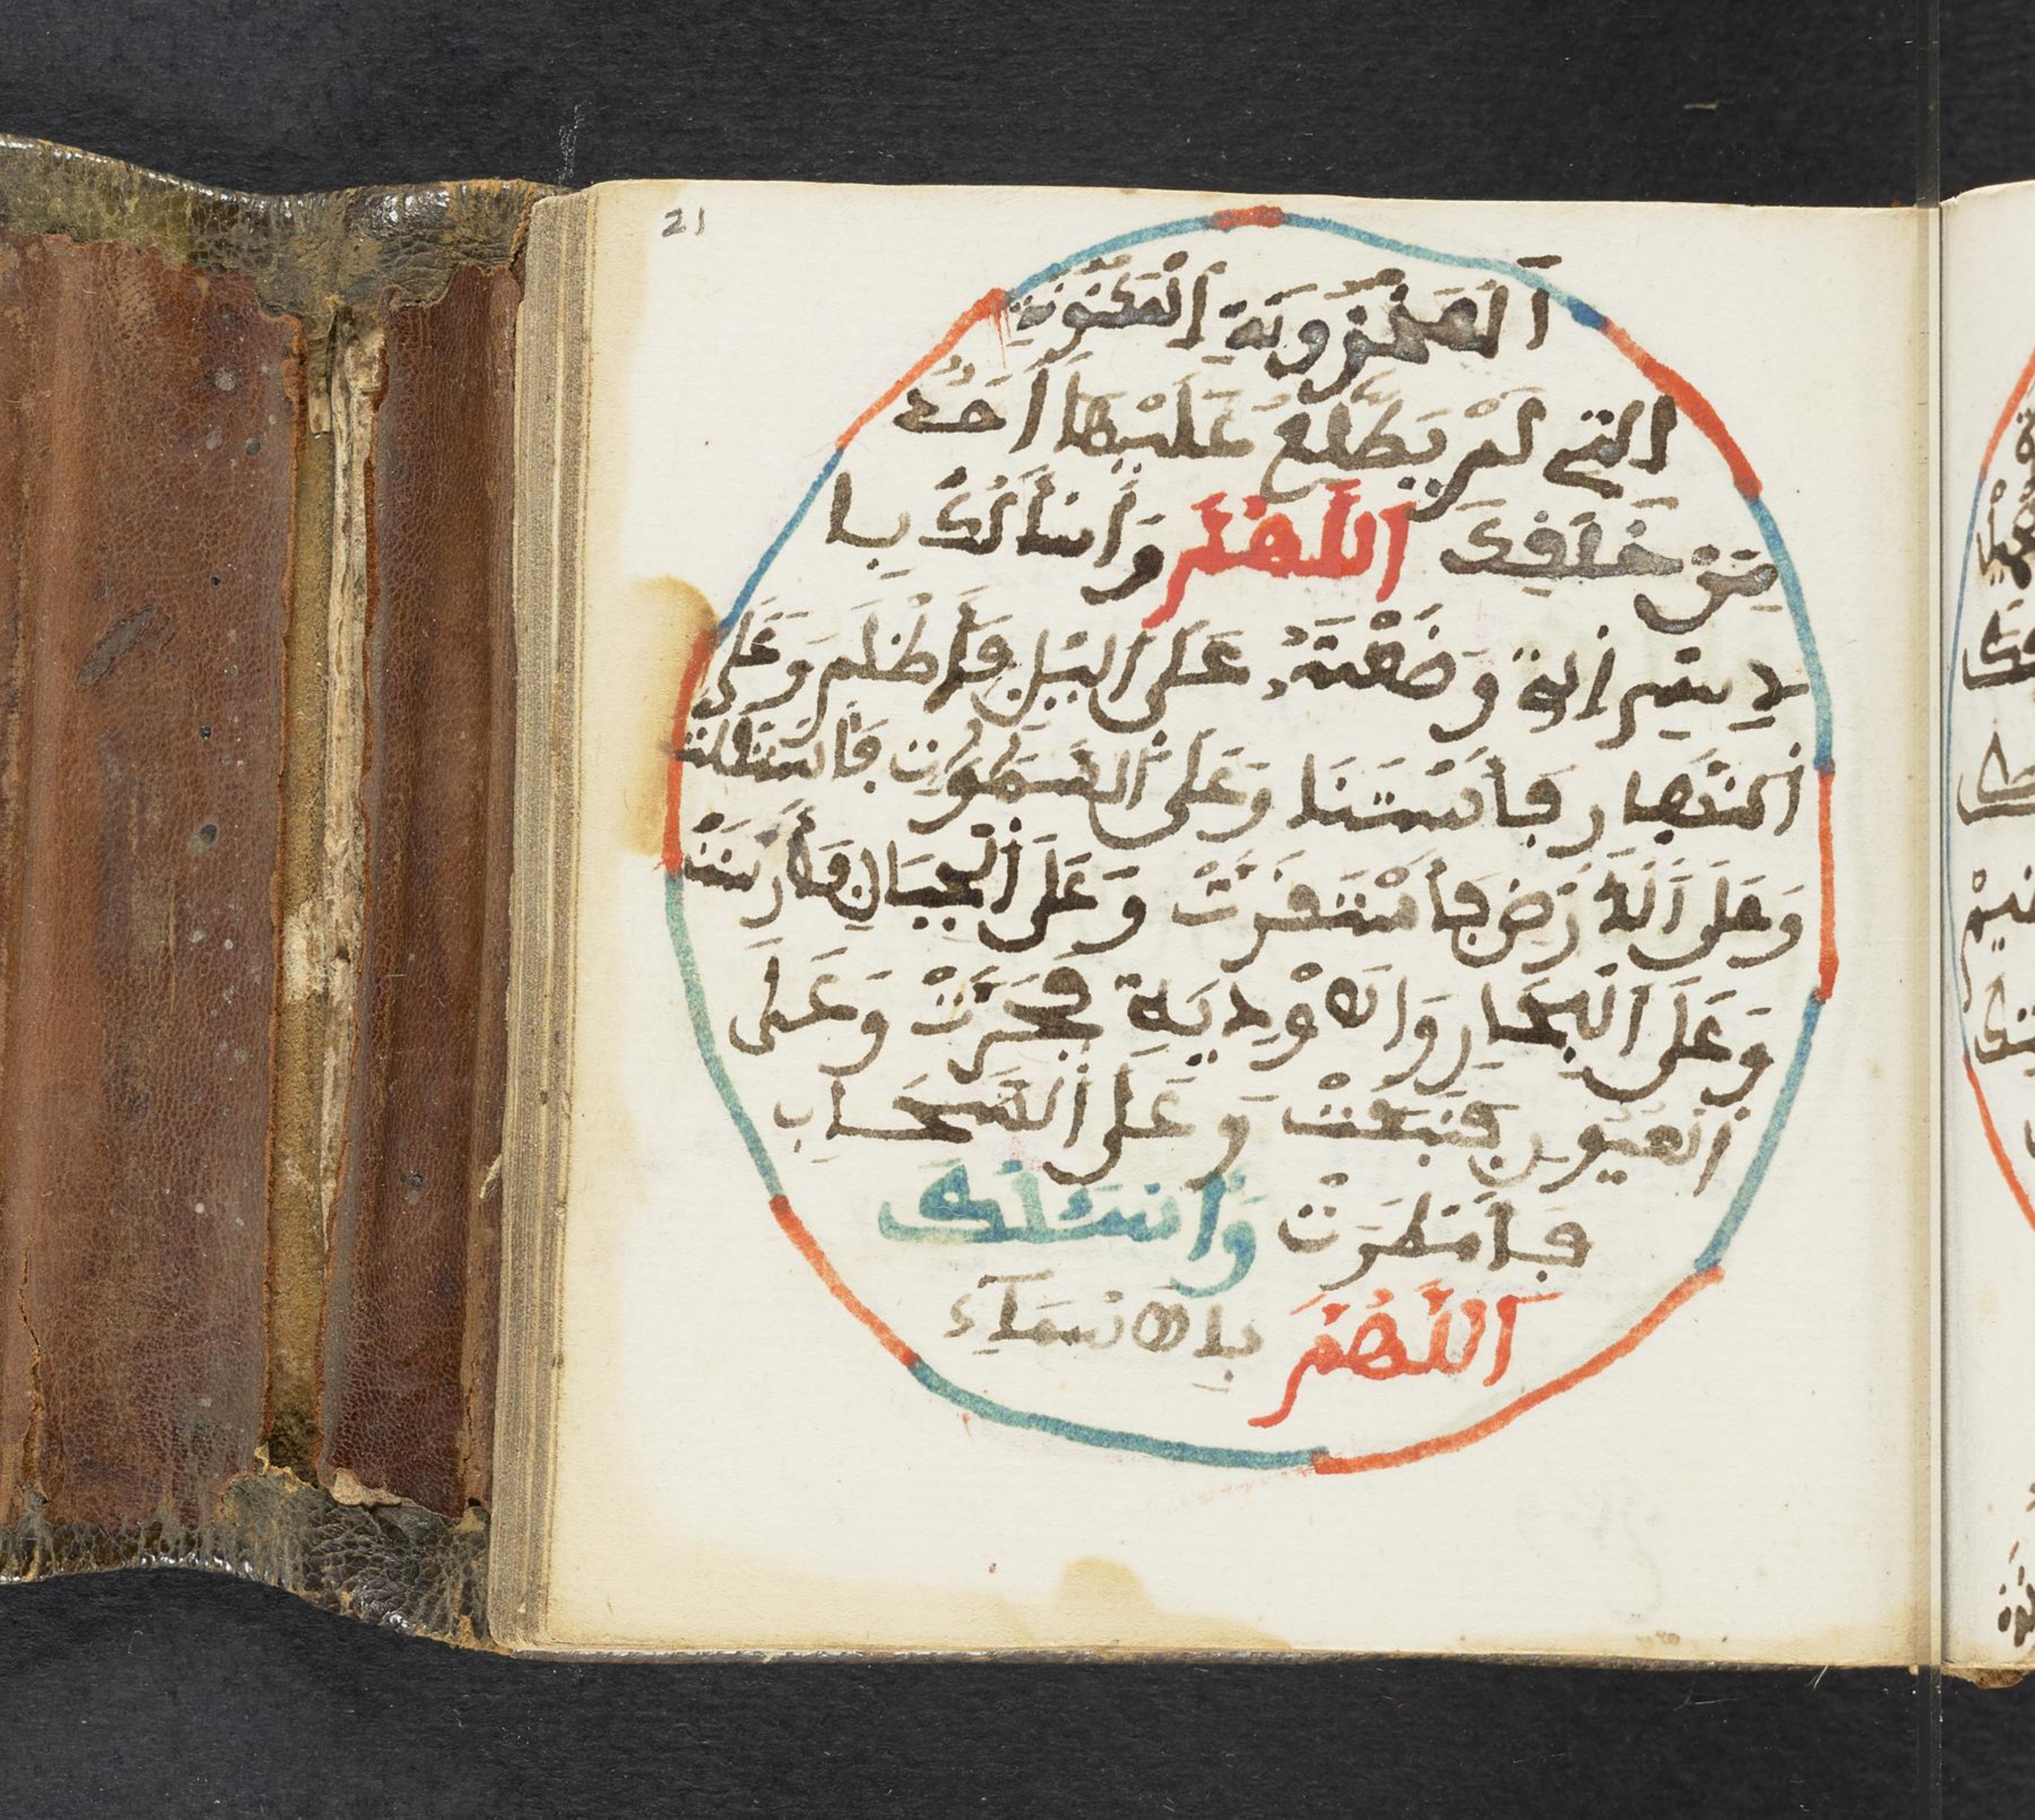 21
اَلْمَخْزُونَةِ اِلْمَكْنُونَةِ
اَلتِے لَمْ يَطَّلِعْ عَلَيْهَا أَحَدٌ
مِّنْ خَلْقِكَ اَللَّهُمَّ وَأَسْأَلُكَ بِا
لِاسْمِ اِلذِے وَضَعْتَهُ عَلَى اَلیْلِ فَأَظْلَمَ وَعَلَى
اَلنَّهِارِ فَاسْتَنَارَ وَعَلَى اَلسَّمَٰوَٰتِ فَاسْتَقَلَّتْ
وَعَلَى اَلَارْضِ فَاسْتَقَرَّتْ وَعَلَى اَلْجِبَالِ فَأَرْسَتْ
وَعَلَى اَلْبِحَارِ وَالَاوْدِيَةِ فَجَرَتْ وَعَلَى
اَلْعُيُونِ فَنَبَعَتْ وَعَلَى اَلسَّحَابِ
فَأَمْطَرَتْ وَأَسْئَلُكَ
اَللَّهُمَّ بِالَاسْمَآءِ